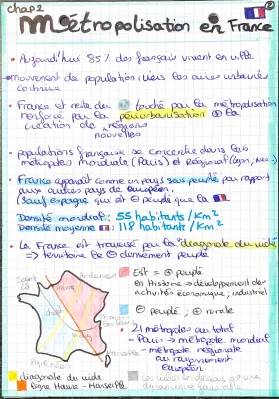 chap 2
Métropolisation en France
• Aujourd'hui 85% des français vivent en ville
• mouvement de population : vers les aires urbaines
continue
• France et reste du touché par la métropolisation
renforcé par la périurbanisation ⊕ la
création de régions
nouvelles
• populations française se concentre dans les
métropoles mondiale (Paris) et Régional (Lyon,
• France apparaît comme un pays sous peuplé par rapport
aux autres pays de européen.
(sauf espagne qui est ⊖ peuplé que la
Densité mondial : 55 habitants / Km²
Densité moyenne : 118 habitants / Km²
• La France est traversé par la "diagonale du vide
=> territoire le ⊖ densement peuplé
Est = ⊕ peuplé
en Histoire → développement des
activités économique, industriel
⊖ peuplé, ⊕ rurale
• 21 métropoles au total
- Paris → métropole mondial
- métropole régionale
au rayonnement
européen
Ardennes
Pyrénées
diagonale du vide
ligne Havre - Marseille